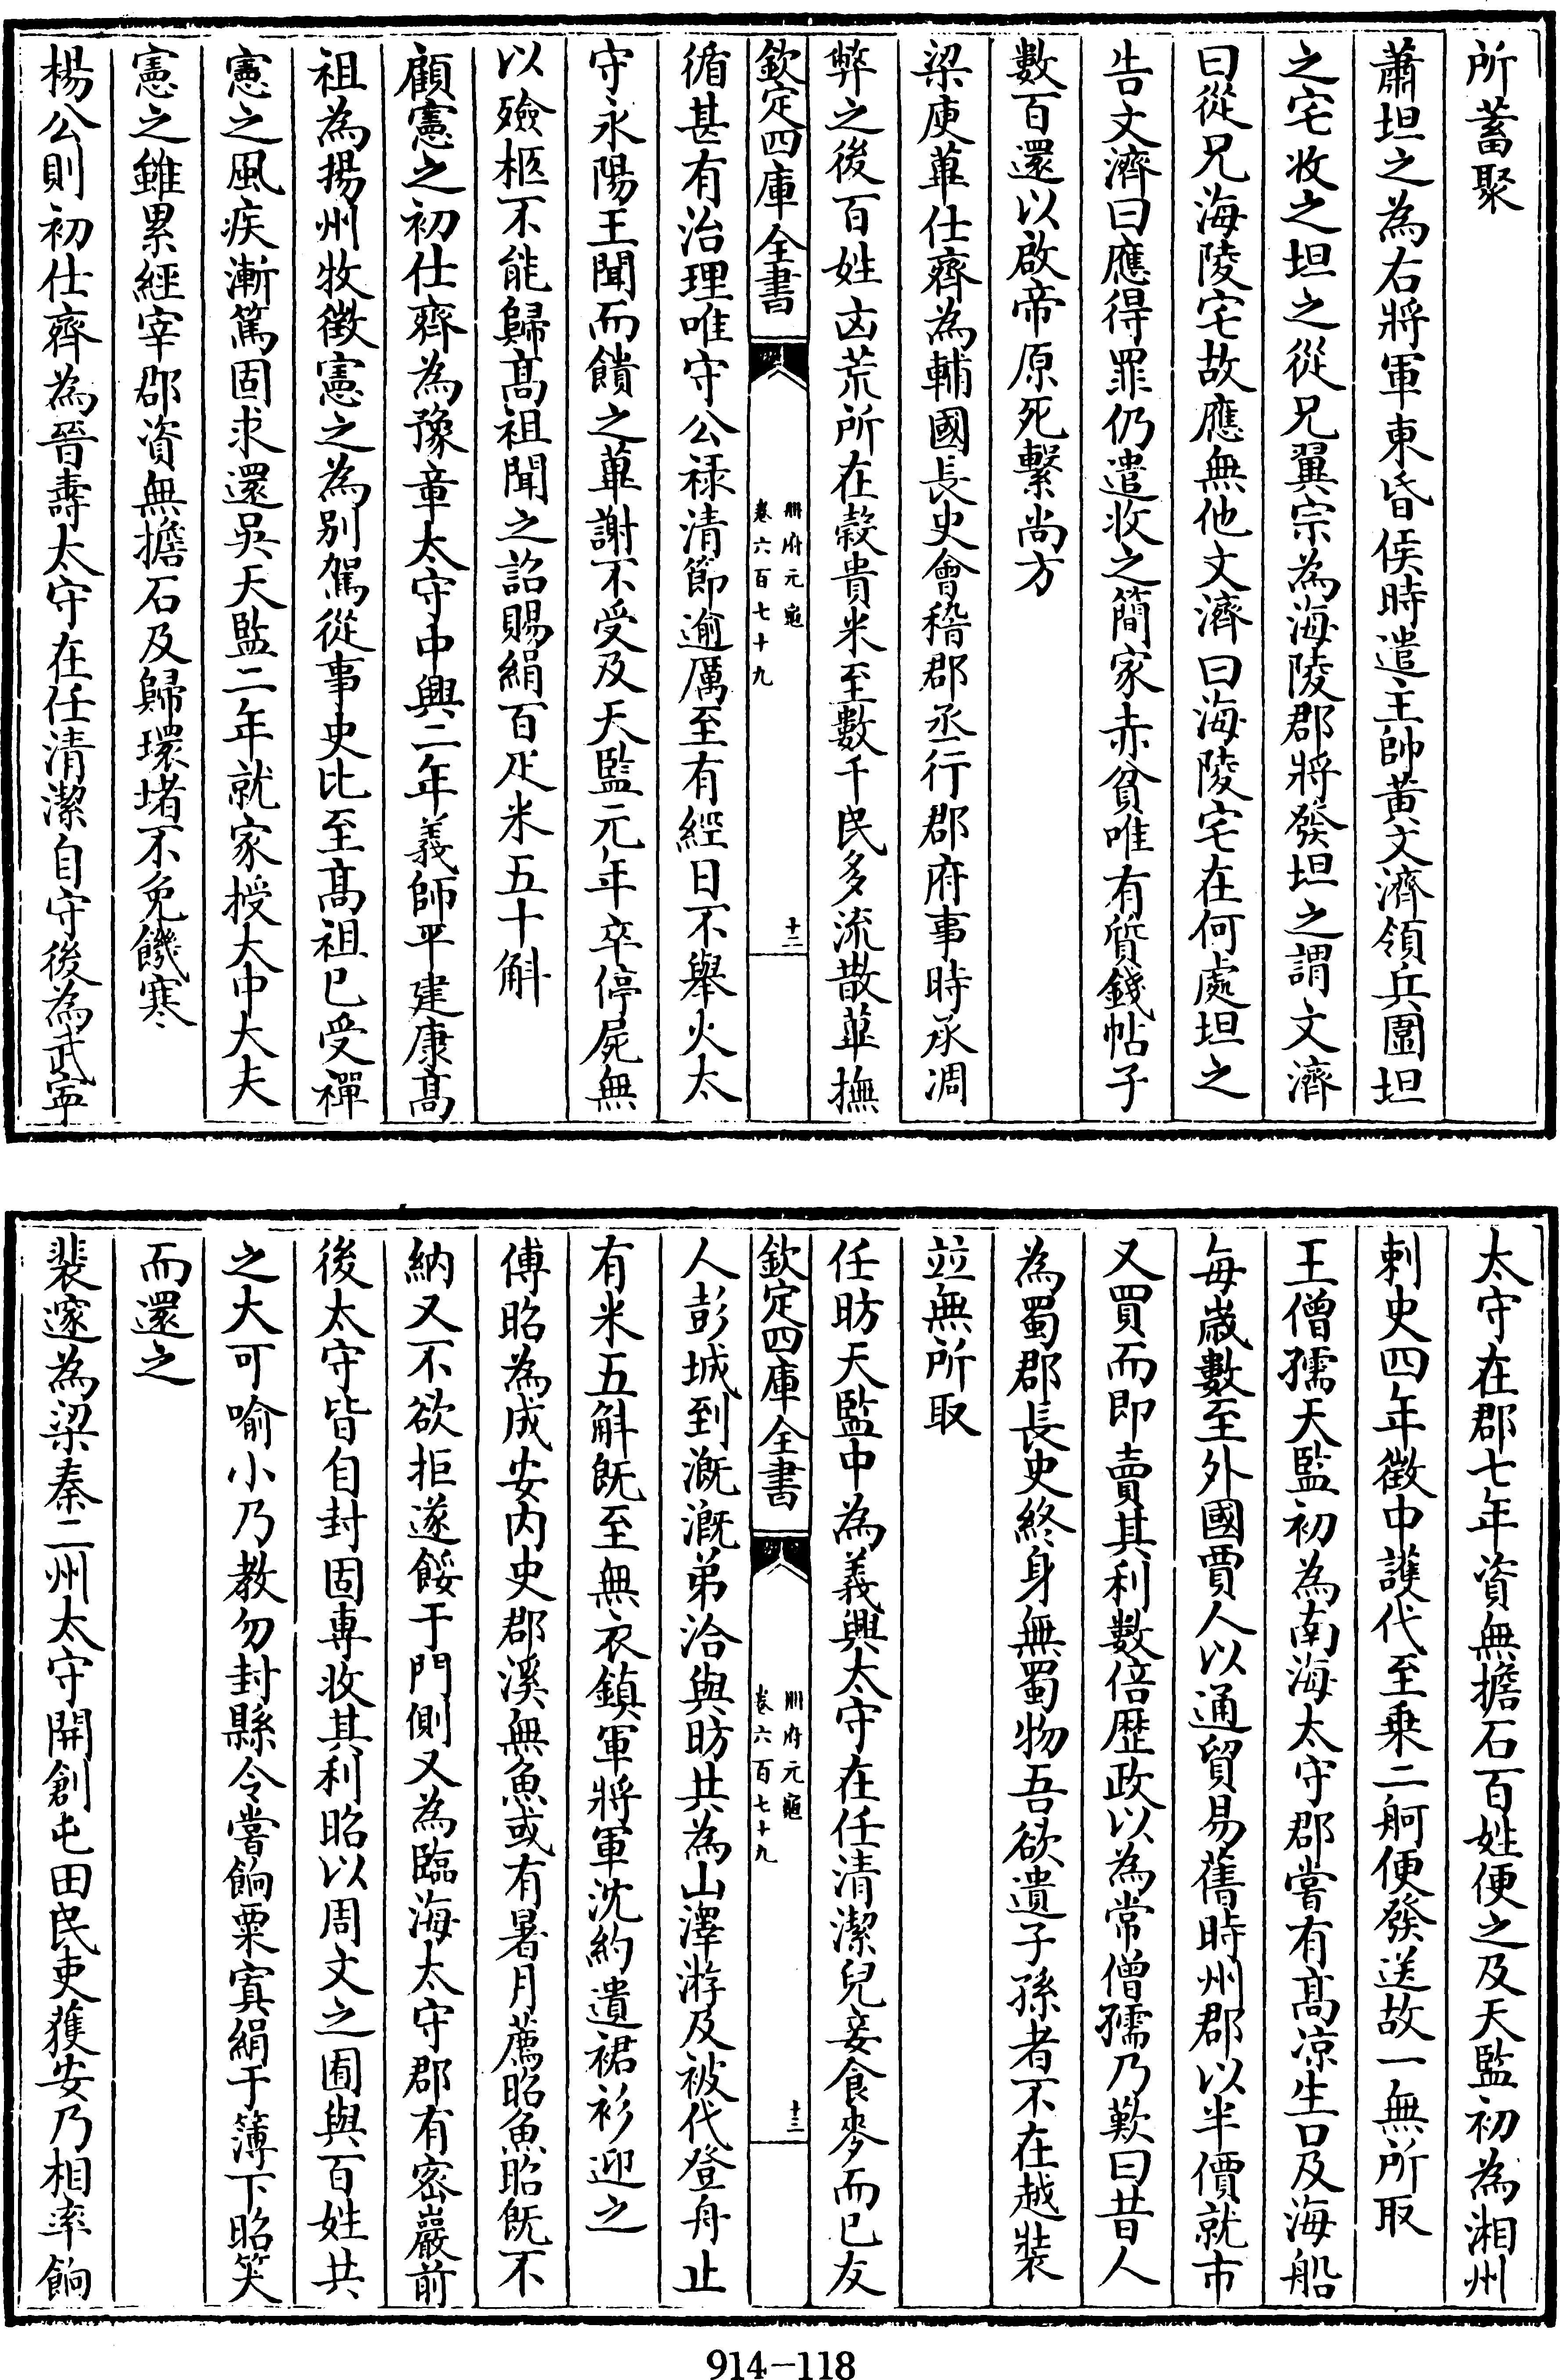 所蓄聚
蕭坦之為右將軍東昏侯時遣主帥黄文濟領兵圍坦
之宅收之坦之從兄翼宗為海陵郡將發坦之謂文濟
曰從兄海陵宅故應無他文濟曰海陵宅在何處坦之
告文濟曰應得罪仍遣收之簡家赤貧唯有質錢帖子
數百還以啟帝原死繫尚方
梁庾蓽仕齊為輔國長史會稽郡丞行郡府事時承凋
弊之後百姓凶荒所在榖貴米至數千民多流散蓽撫
欽定四庫全書
册府元龜
卷六百七十九
十二
循甚有治理唯守公禄清節逾厲至有經日不舉火太
守永陽王聞而饋之蓽謝不受及天監元年卒停屍無
以殮柩不能歸髙祖聞之詔賜絹百疋米五十斛
顧憲之初仕齊為豫章太守中興二年義師平建康髙
祖為揚州牧徵憲之為别駕從事史比至髙祖已受禪
憲之風疾漸篤固求還吳天監二年就家授太中大夫
憲之雖累經宰郡資無擔石及歸環堵不免饑寒
楊公則初仕齊為晉壽太守在任清潔自守後為武寧
太守在郡七年資無擔石百姓便之及天監初為湘州
刺史四年徵中護代至乗二舸便發送故一無所取
王僧孺天監初為南海太守郡嘗有髙凉生口及海船
每嵗數至外國賈人以通貿易舊時州郡以半價就市
又買而即賣其利數倍歴政以為常僧孺乃歎曰昔人
為蜀郡長史終身無蜀物吾欲遺子孫者不在越裝
並無所取
任昉天監中為義興太守在任清潔兒妾食麥而已友
欽定四庫全書
册府元龜
卷六百七十九
十三
人彭城到溉溉弟洽與昉共為山澤游及被代登舟止
有米五斛既至無衣鎮軍將軍沈約遺裙衫迎之
傅昭為成安内史郡溪無魚或有暑月薦昭魚昭既不
納又不欲拒遂餒于門側又為臨海太守郡有宻巖前
後太守皆自封固專收其利昭以周文之囿與百姓共
之大可喻小乃教勿封縣令嘗餉粟寘絹于簿下昭笑
而還之
裴邃為梁秦二州太守開創屯田民吏獲安乃相率餉
914-118